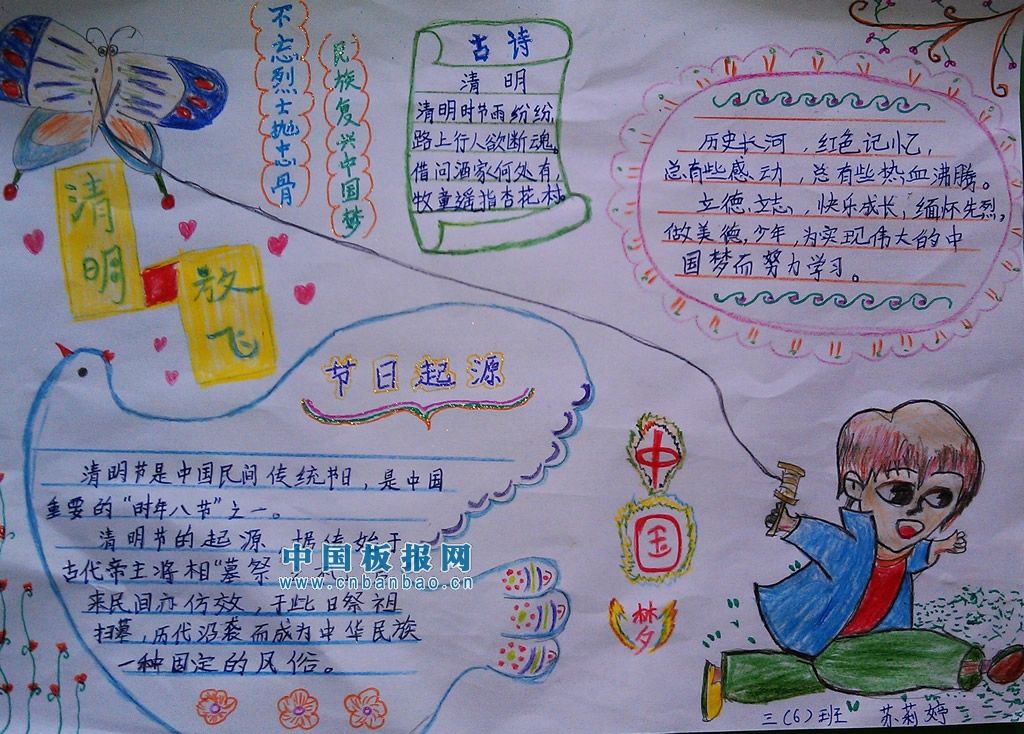 不忘烈士抛忠骨
民族复兴中国梦
古诗
清明
清明时节雨纷纷,
路上行人欲断魂。
借问酒家何处有,
牧童遥指杏花村。
历史长河，红色记忆，
总有些感动，总有些热血沸腾。
立德、立志，快乐成长，缅怀先烈，
做美德少年，为实现伟大的中
国梦而努力学习。
清明
放飞
节日起源
清明节是中国民间传统节日，是中国
重要的“时年八节”之一。
清明节的起源，据传始于
古代帝王将相“墓祭
来民间亦仿效，于此日祭祖
扫墓，历代沿袭而成为中华民族
一种固定的风俗。
中国板报网
www.cnbanbao.cn
中
国
梦
三(6)班 苏莉婷